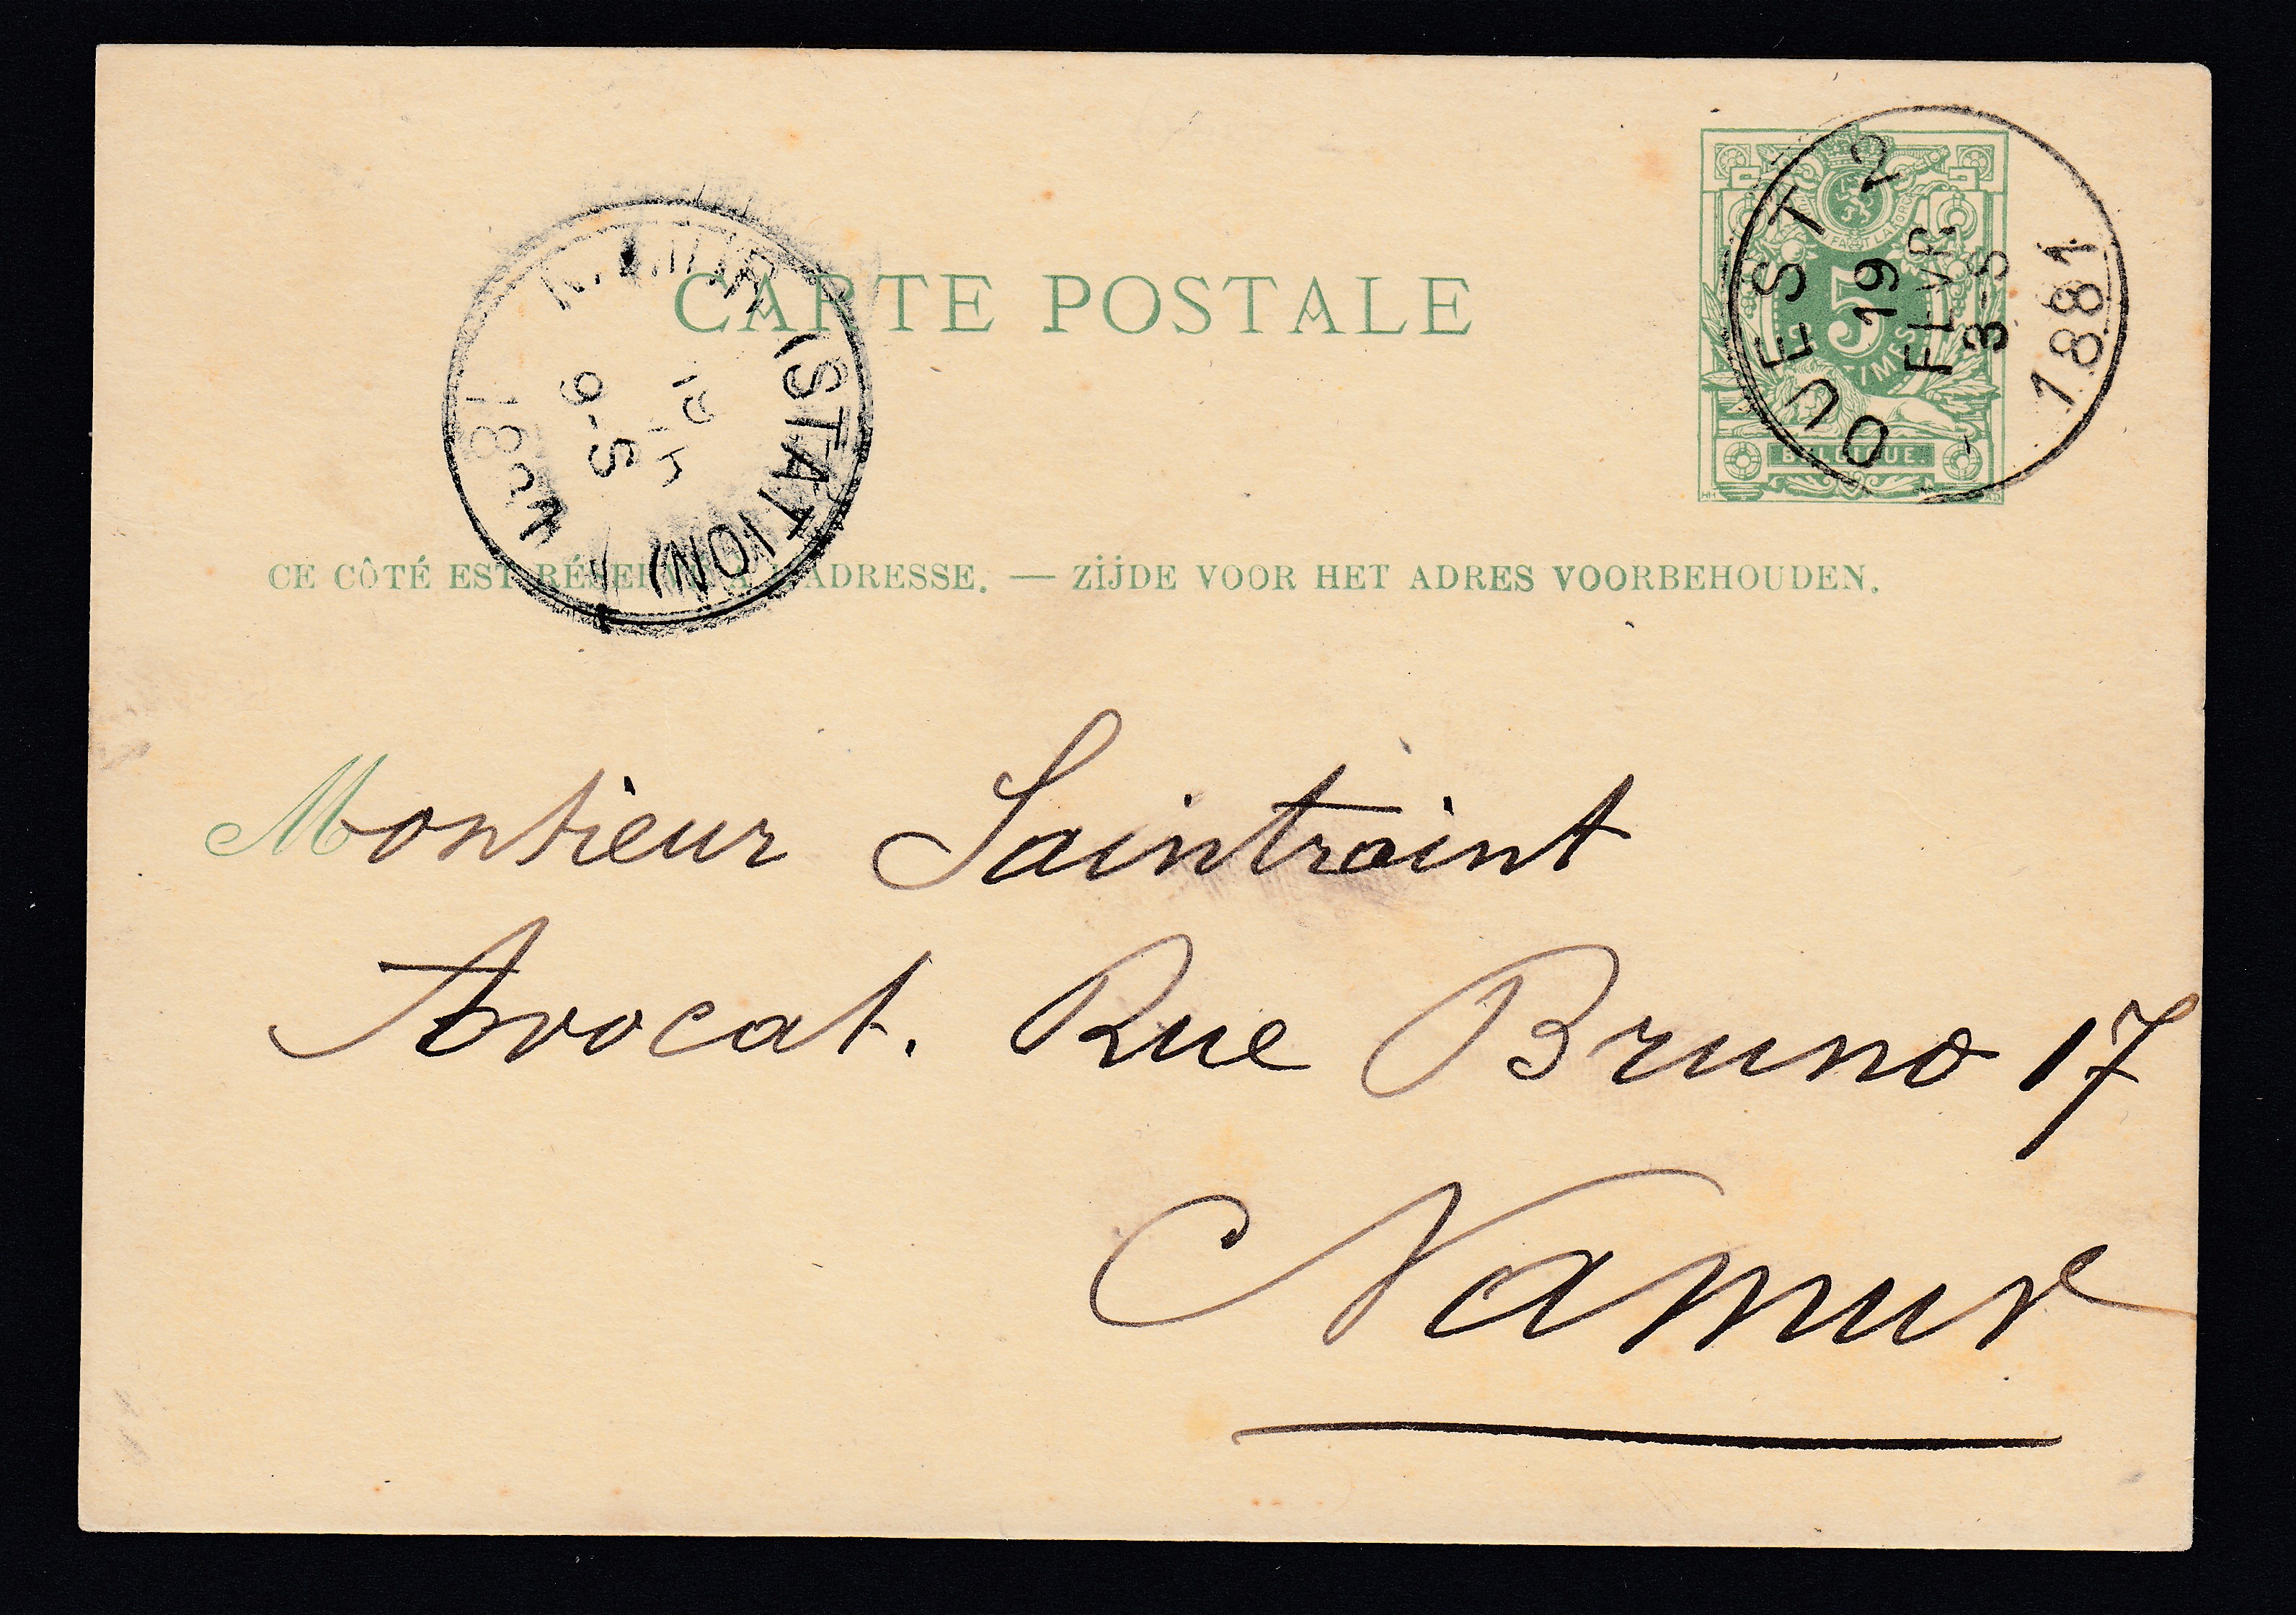 CARTE POSTALE
OUEST 2
19
FEVR
3-S
1881
5
BELGIQUE.
(STATION)
6-S
CE CÔTÉ EST RÉSERVÉ À L'ADRESSE. — ZIJDE VOOR HET ADRES VOORBEHOUDEN.
Monsieur Saintraint
Avocat. Rue Bruno 17
Namur